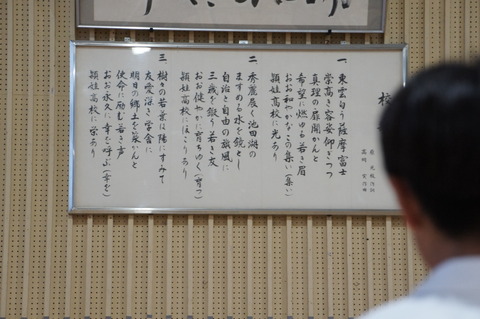 校
一 東雲匂う薩摩富士
崇高き容姿仰ぎつつ
真理の扉開かんと
希望に燃ゆる若き眉
おお和やかなこの集い(集い)
頴娃高校に光あり
二 秀麗展く池田湖の
ますみの水を鏡とし
自治と自由の旗風に
三歳を鍛う若き友
おお健やかに育ちゆく(育つ)
頴娃高校にほこりあり
三 樹々の若葉は陽にすみて
友愛深き学舎に
明日の郷土を築かんと
使命に励む若き声
おお永久に幸を呼ぶ(幸を)
頴娃高校に栄あり